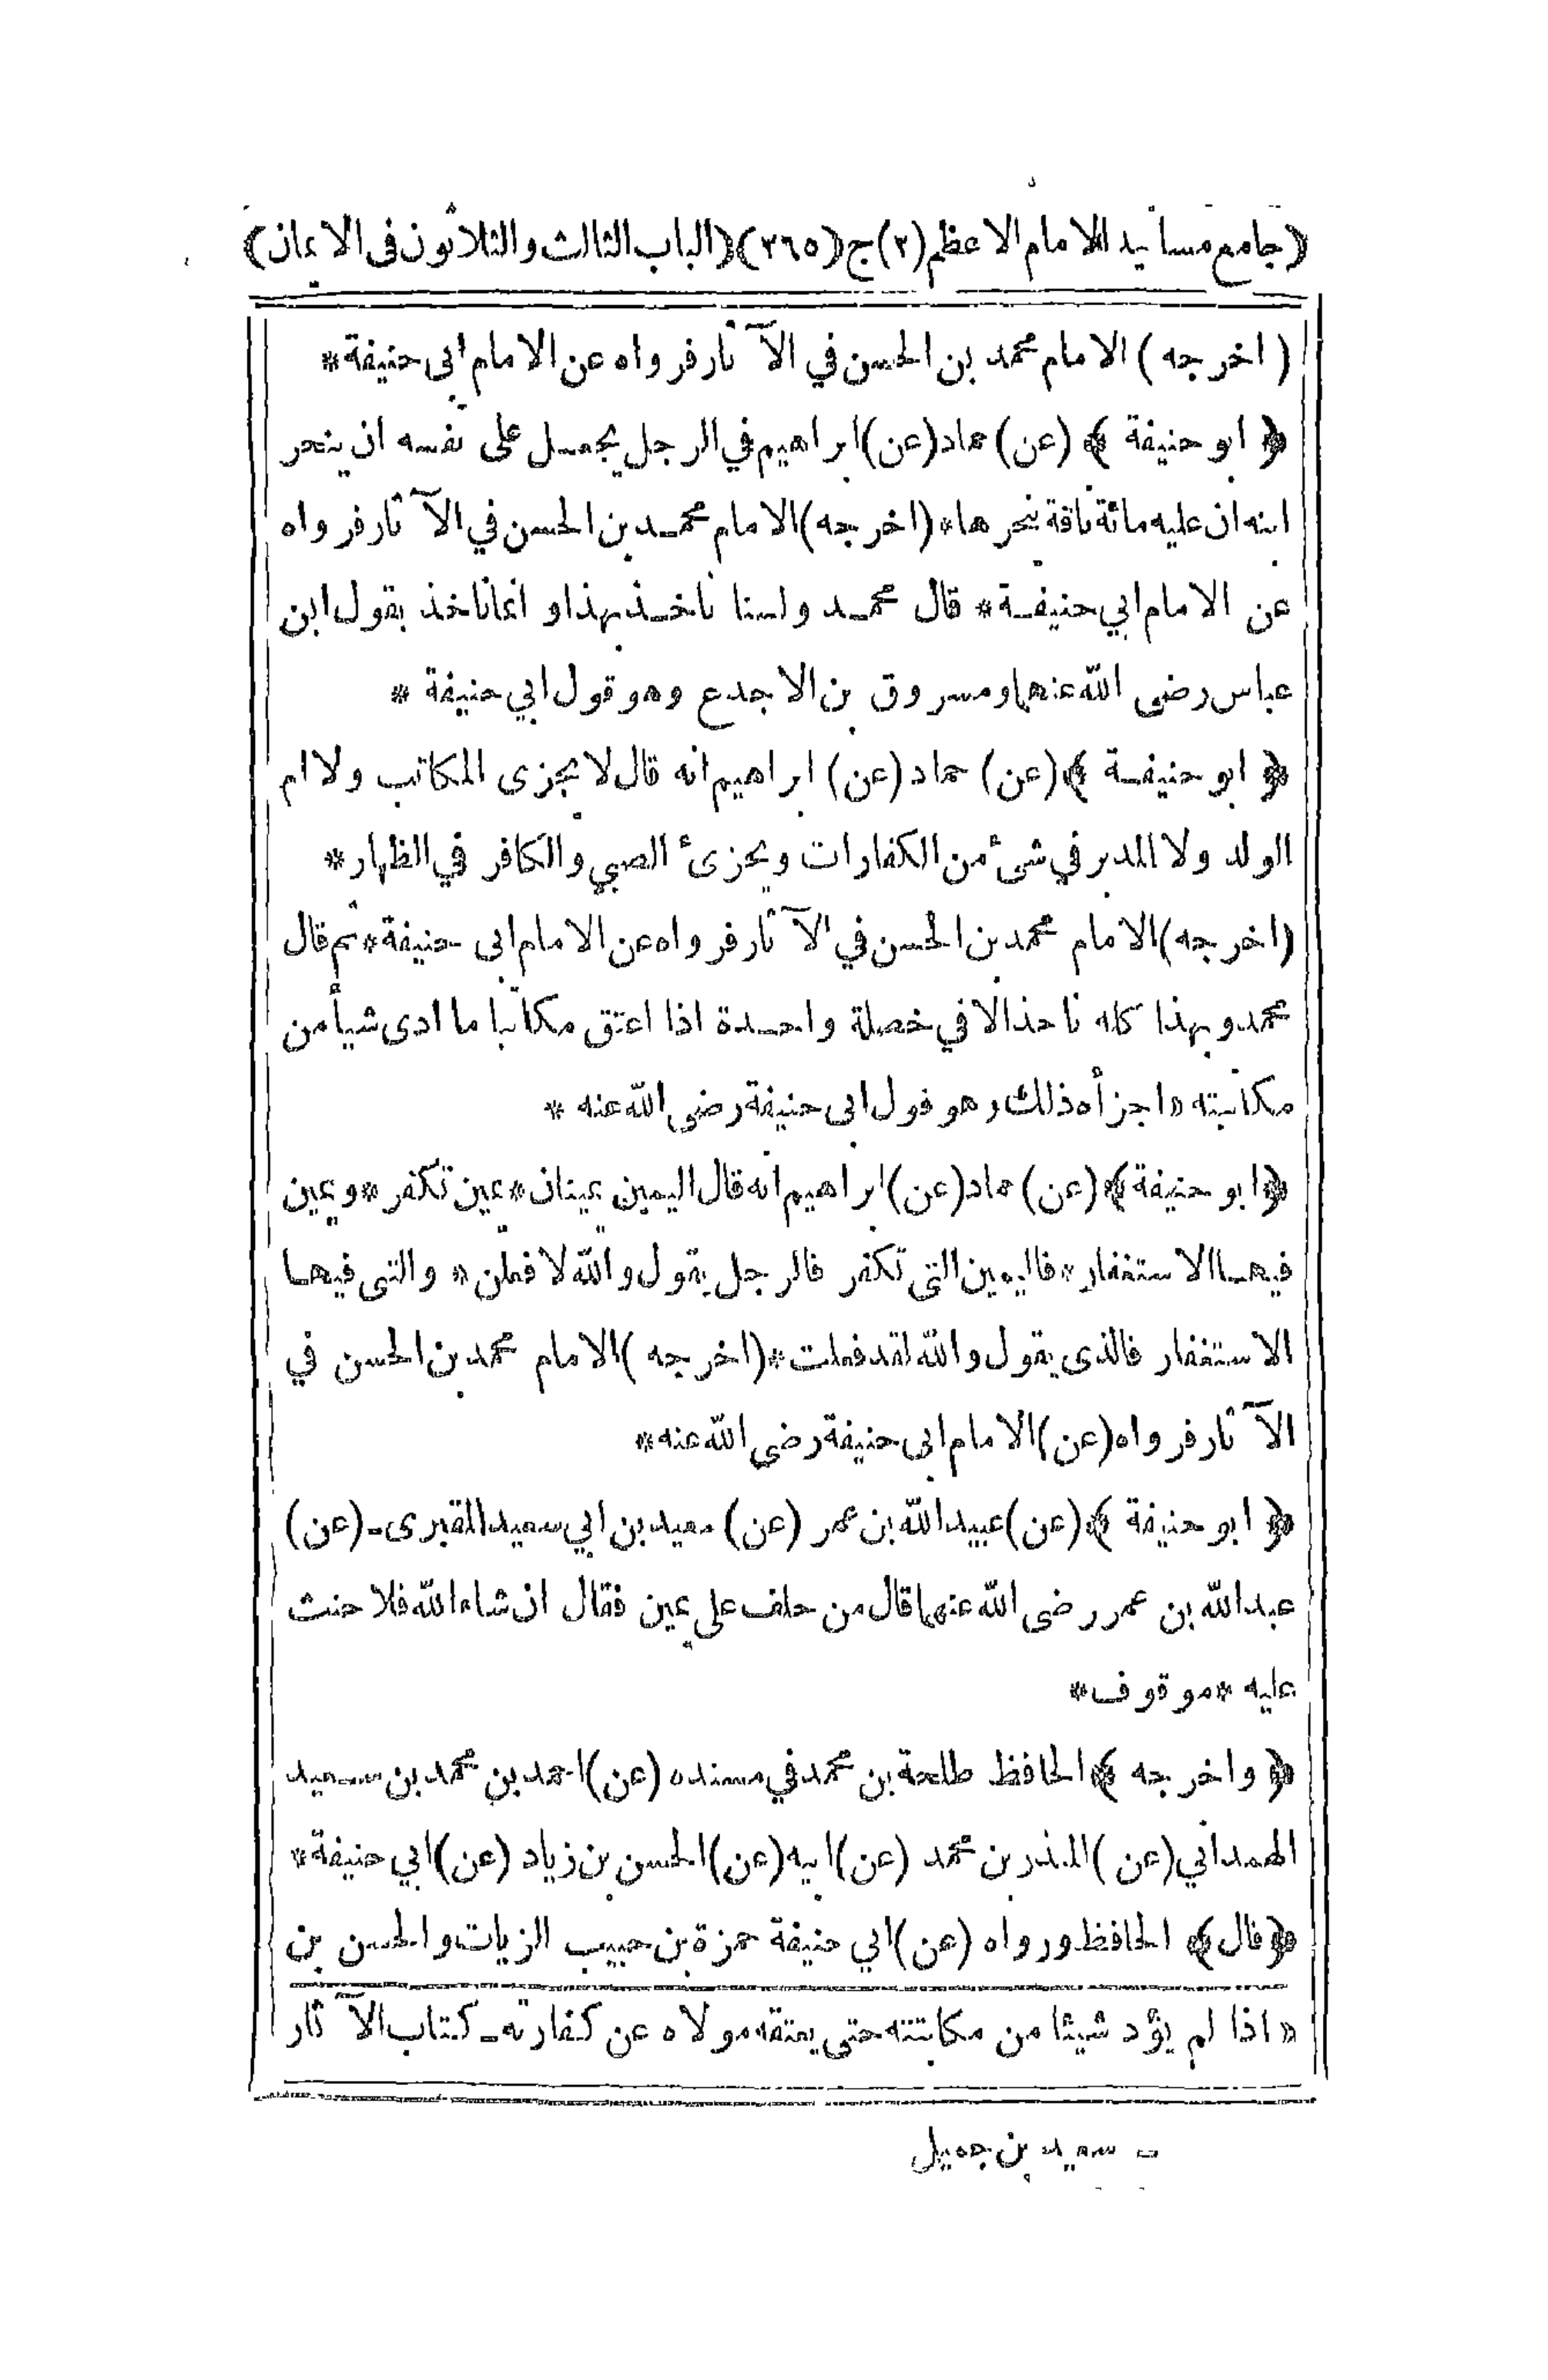 (جامع مسانيد الامام الاعظم (٢) ج (٣٦٥) (الباب الثالث والثلاثون فى الايمان)
( اخرجه ) الامام محمد بن الحسن في الآثار فرواه عن الامام ابى حنيفة *
﴿ ابو حنيفة ﴾ (عن) حماد (عن) ابراهيم في الرجل يجعل على نفسه ان ينحر
ابنه ان عليه مائة ناقة ينحرها * (اخرجه) الامام محمد بن الحسن في الآثار فرواه
عن الامام ابي حنيفة * قال محمد ولسنا ناخذ بهذا وانما ناخذ بقول ابن
عباس رضى الله عنهما ومسروق بن الاجدع وهو قول ابي حنيفة *
﴿ ابو حنيفة ﴾ (عن) حماد (عن) ابراهيم انه قال لا يجزى المكاتب ولا ام
الولد ولا المدبر في شىٔ من الكفارات ويجزىٔ الصبي والكافر في الظهار *
(اخرجه) الامام محمد بن الحسن في الآثار فرواه عن الامام ابى حنيفة * ثم قال
محمد وبهذا كله ناخذ الا في خصلة واحدة اذا اعتق مكاتبا ما ادى شيأ من
مكاتبته « اجزأه ذلك وهو قول ابى حنيفة رضى الله عنه *
﴿ ابو حنيفة ﴾ (عن) حماد (عن) ابراهيم انه قال اليمين يمينان * يمين تكفر * ويمين
فيها الاستغفار * فاليمين التى تكفر فالرجل يقول والله لافعلن * والتى فيها
الاستغفار فالذى يقول والله لقد فعلت * (اخرجه ) الامام محمد بن الحسن في
الآثار فرواه (عن) الامام ابى حنيفة رضى الله عنه *
﴿ ابو حنيفة ﴾ (عن) عبيد الله بن عمر (عن) سعيد بن ابي سعيد المقبرى - (عن)
عبد الله بن عمر رضى الله عنهما قال من حلف على يمين فقال ان شاء الله فلا حنث
عليه * موقوف *
﴿ واخرجه ﴾ الحافظ طلحة بن محمد في مسنده (عن) احمد بن محمد بن سعيد
الهمداني (عن) المنذر بن محمد (عن) ابيه (عن) الحسن بن زياد (عن) ابي حنيفة *
﴿ قال ﴾ الحافظ ورواه (عن) ابي حنيفة حمزة بن حبيب الزيات والحسن بن
« اذا لم يؤد شيئا من مكاتبته حتى يعتقه مولاه عن كفارته - كتاب الآثار
- سعيد بن جميل